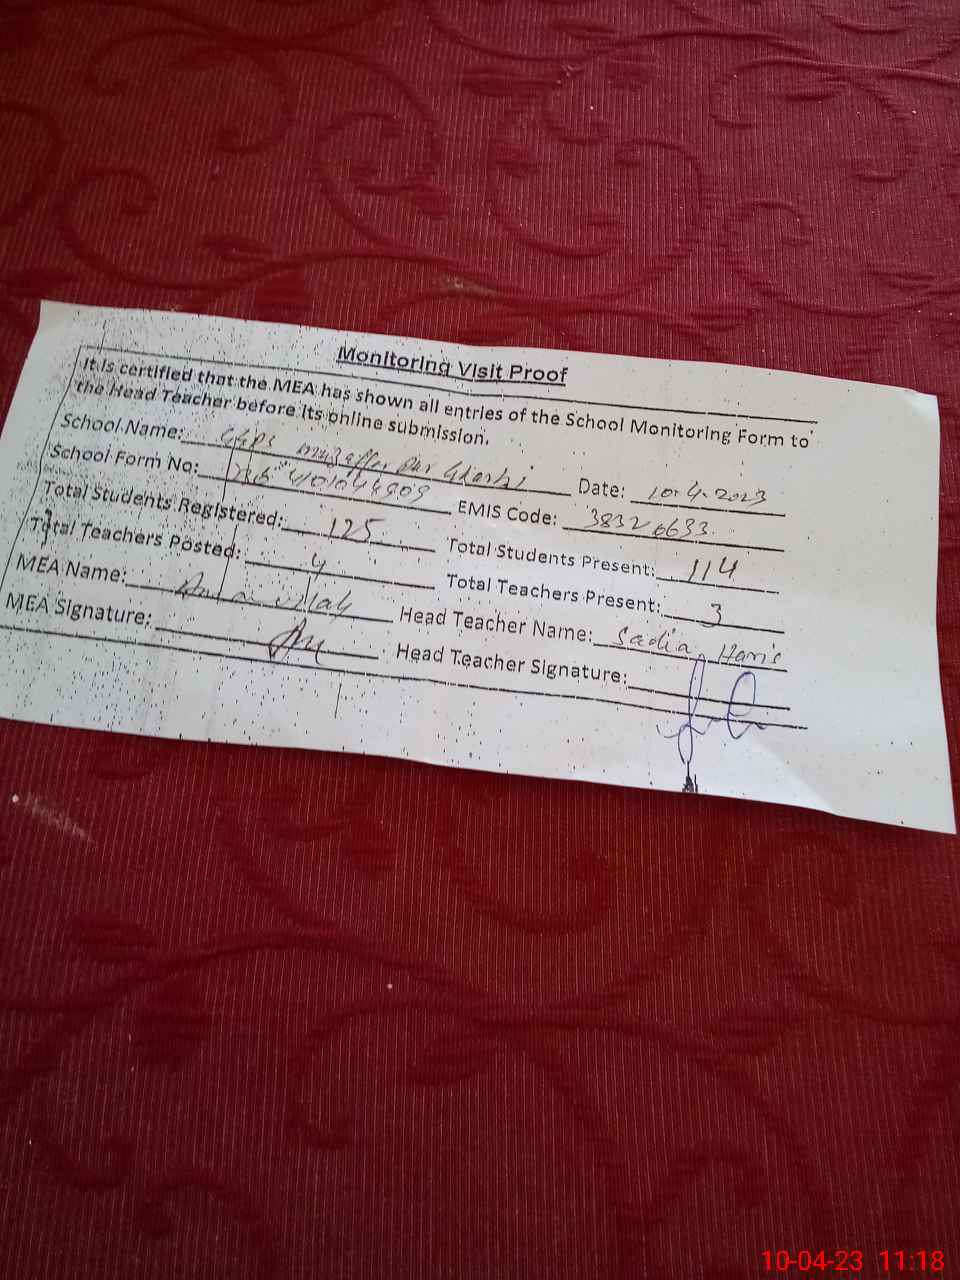 Monitoring Visit Proof
It is certified that the MEA has shown all entries of the School Monitoring Form to
the Head Teacher before its online submission.
School Name: GGPS muzaffar pur Gharbi Date: 10.4.2023
School Form No: EMIS Code: 38326633
Total Students Registered: 125 Total Students Present: 114
Total Teachers Posted: 4 Total Teachers Present: 3
MEA Name: Head Teacher Name: Sadia Haris
MEA Signature: Head Teacher Signature:
10-04-23 11:18